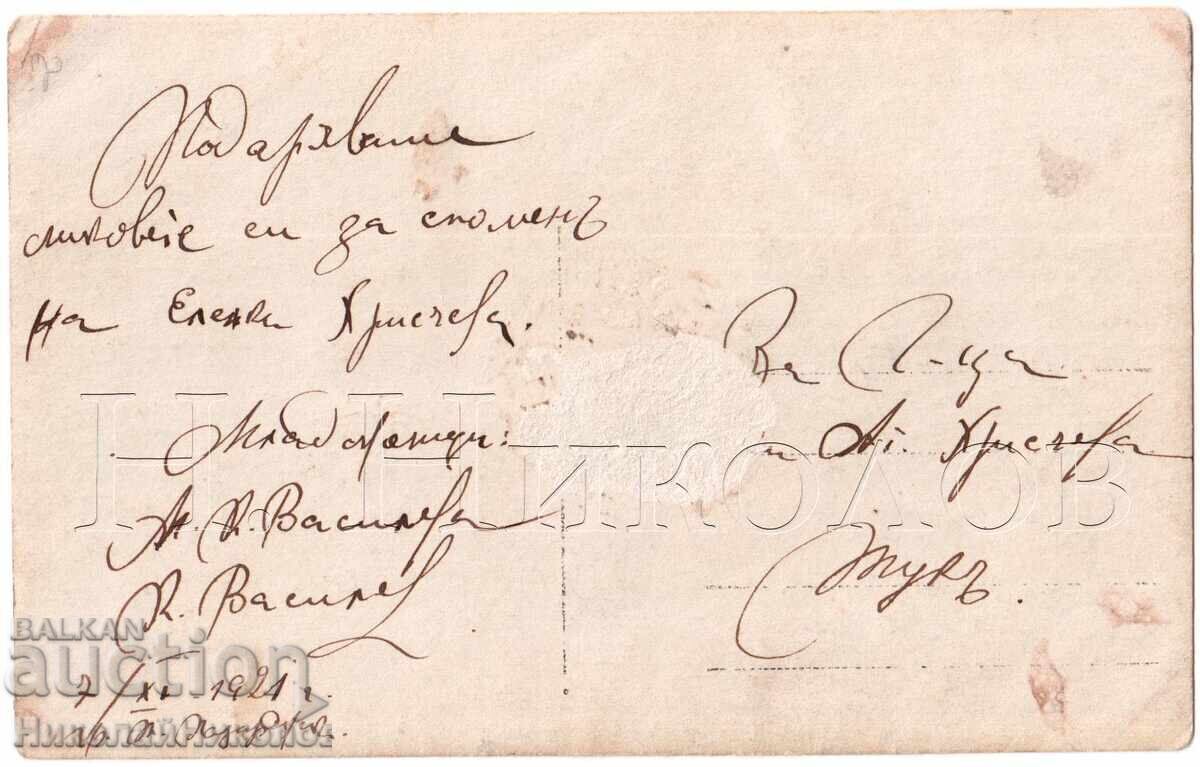 Подаряваме
ликовете си за споменъ
на Еленка Христева.
Младоженци:
К. Василева
К. Василев
7/XI 1921 г.
За Г-ца
Христева
Тукъ.
Н. Николов
BALKAN
auction
НиколайНиколов